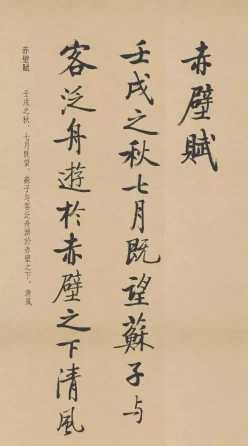 赤壁賦
壬戌之秋七月既望蘇子与
客泛舟遊於赤壁之下清風
赤壁賦
壬戌之秋，七月既望，蘇子与客泛舟遊於赤壁之下。清風